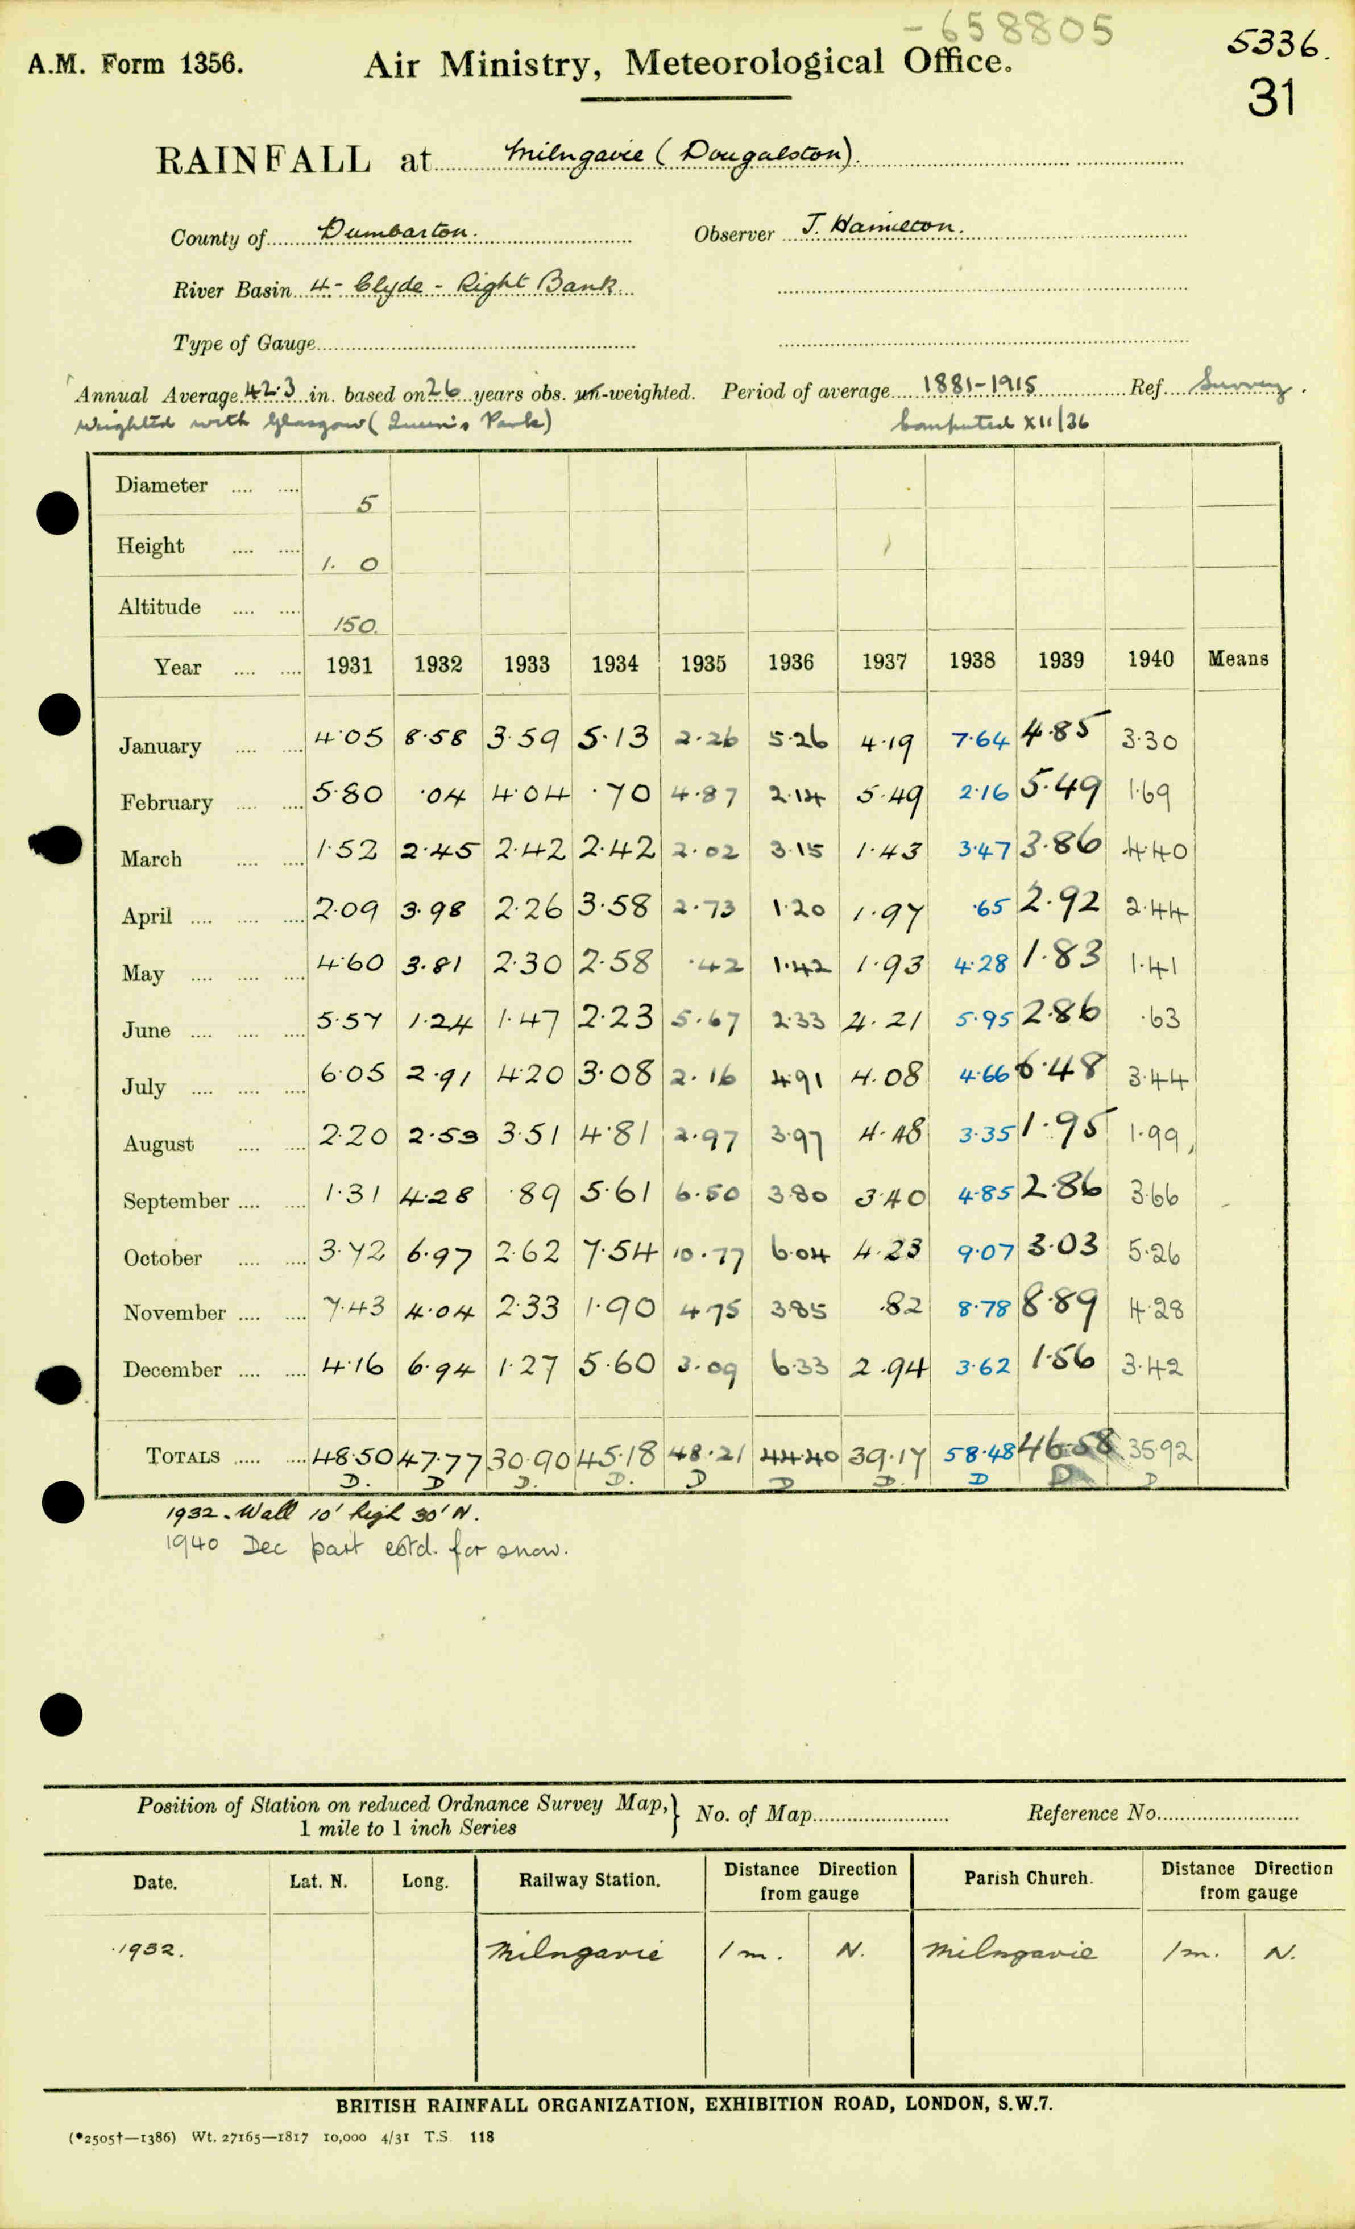 -658805
5336.
31
A.M. Form 1356.
Air Ministry, Meteorological Office.
RAINFALL at Milngavie (Dougalston).
County of Dumbarton. Observer J. Hamilton.
River Basin 4 - Clyde - Right Bank
Type of Gauge
Annual Average 42.3 in. based on 26 years obs. un-weighted. Period of average 1881-1915 Ref. Survey.
Weighted with Glasgow (Queen's Park) Computed XII/36
Diameter 5
Height 1. 0
Altitude 150.
Year 1931 1932 1933 1934 1935 1936 1937 1938 1939 1940 Means
January 4.05 8.58 3.59 5.13 2.26 5.26 4.19 7.64 4.85 3.30
February 5.80 .04 4.04 .70 4.87 2.14 5.49 2.16 5.49 1.69
March 1.52 2.45 2.42 2.42 2.02 3.15 1.43 3.47 3.86 4.40
April 2.09 3.98 2.26 3.58 2.73 1.20 1.97 .65 2.92 2.44
May 4.60 3.81 2.30 2.58 .42 1.42 1.93 4.28 1.83 1.41
June 5.57 1.24 1.47 2.23 5.67 2.33 4.21 5.95 2.86 .63
July 6.05 2.91 4.20 3.08 2.16 4.91 4.08 4.66 6.48 3.44
August 2.20 2.53 3.51 4.81 2.97 3.97 4.48 3.35 1.95 1.99
September 1.31 4.28 .89 5.61 6.50 3.80 3.40 4.85 2.86 3.66
October 3.72 6.97 2.62 7.54 10.77 6.04 4.23 9.07 3.03 5.26
November 7.43 4.04 2.33 1.90 4.75 3.85 .82 8.78 8.89 4.28
December 4.16 6.94 1.27 5.60 3.09 6.33 2.94 3.62 1.56 3.42
TOTALS 48.50 47.77 30.90 45.18 48.21 44.40 39.17 58.48 46.58 35.92
D. D D. D. D D D. D D D
1932. Wall 10' high 30' N.
1940 Dec part estd. for snow.
Position of Station on reduced Ordnance Survey Map, No. of Map Reference No.
1 mile to 1 inch Series
Date. Lat. N. Long. Railway Station. Distance Direction from gauge Parish Church. Distance Direction from gauge
1932. Milngavie 1 m. N. Milngavie 1 m. N.
BRITISH RAINFALL ORGANIZATION, EXHIBITION ROAD, LONDON, S.W.7.
(*2505†—1386) Wt. 27165—1817 10,000 4/31 T.S. 118